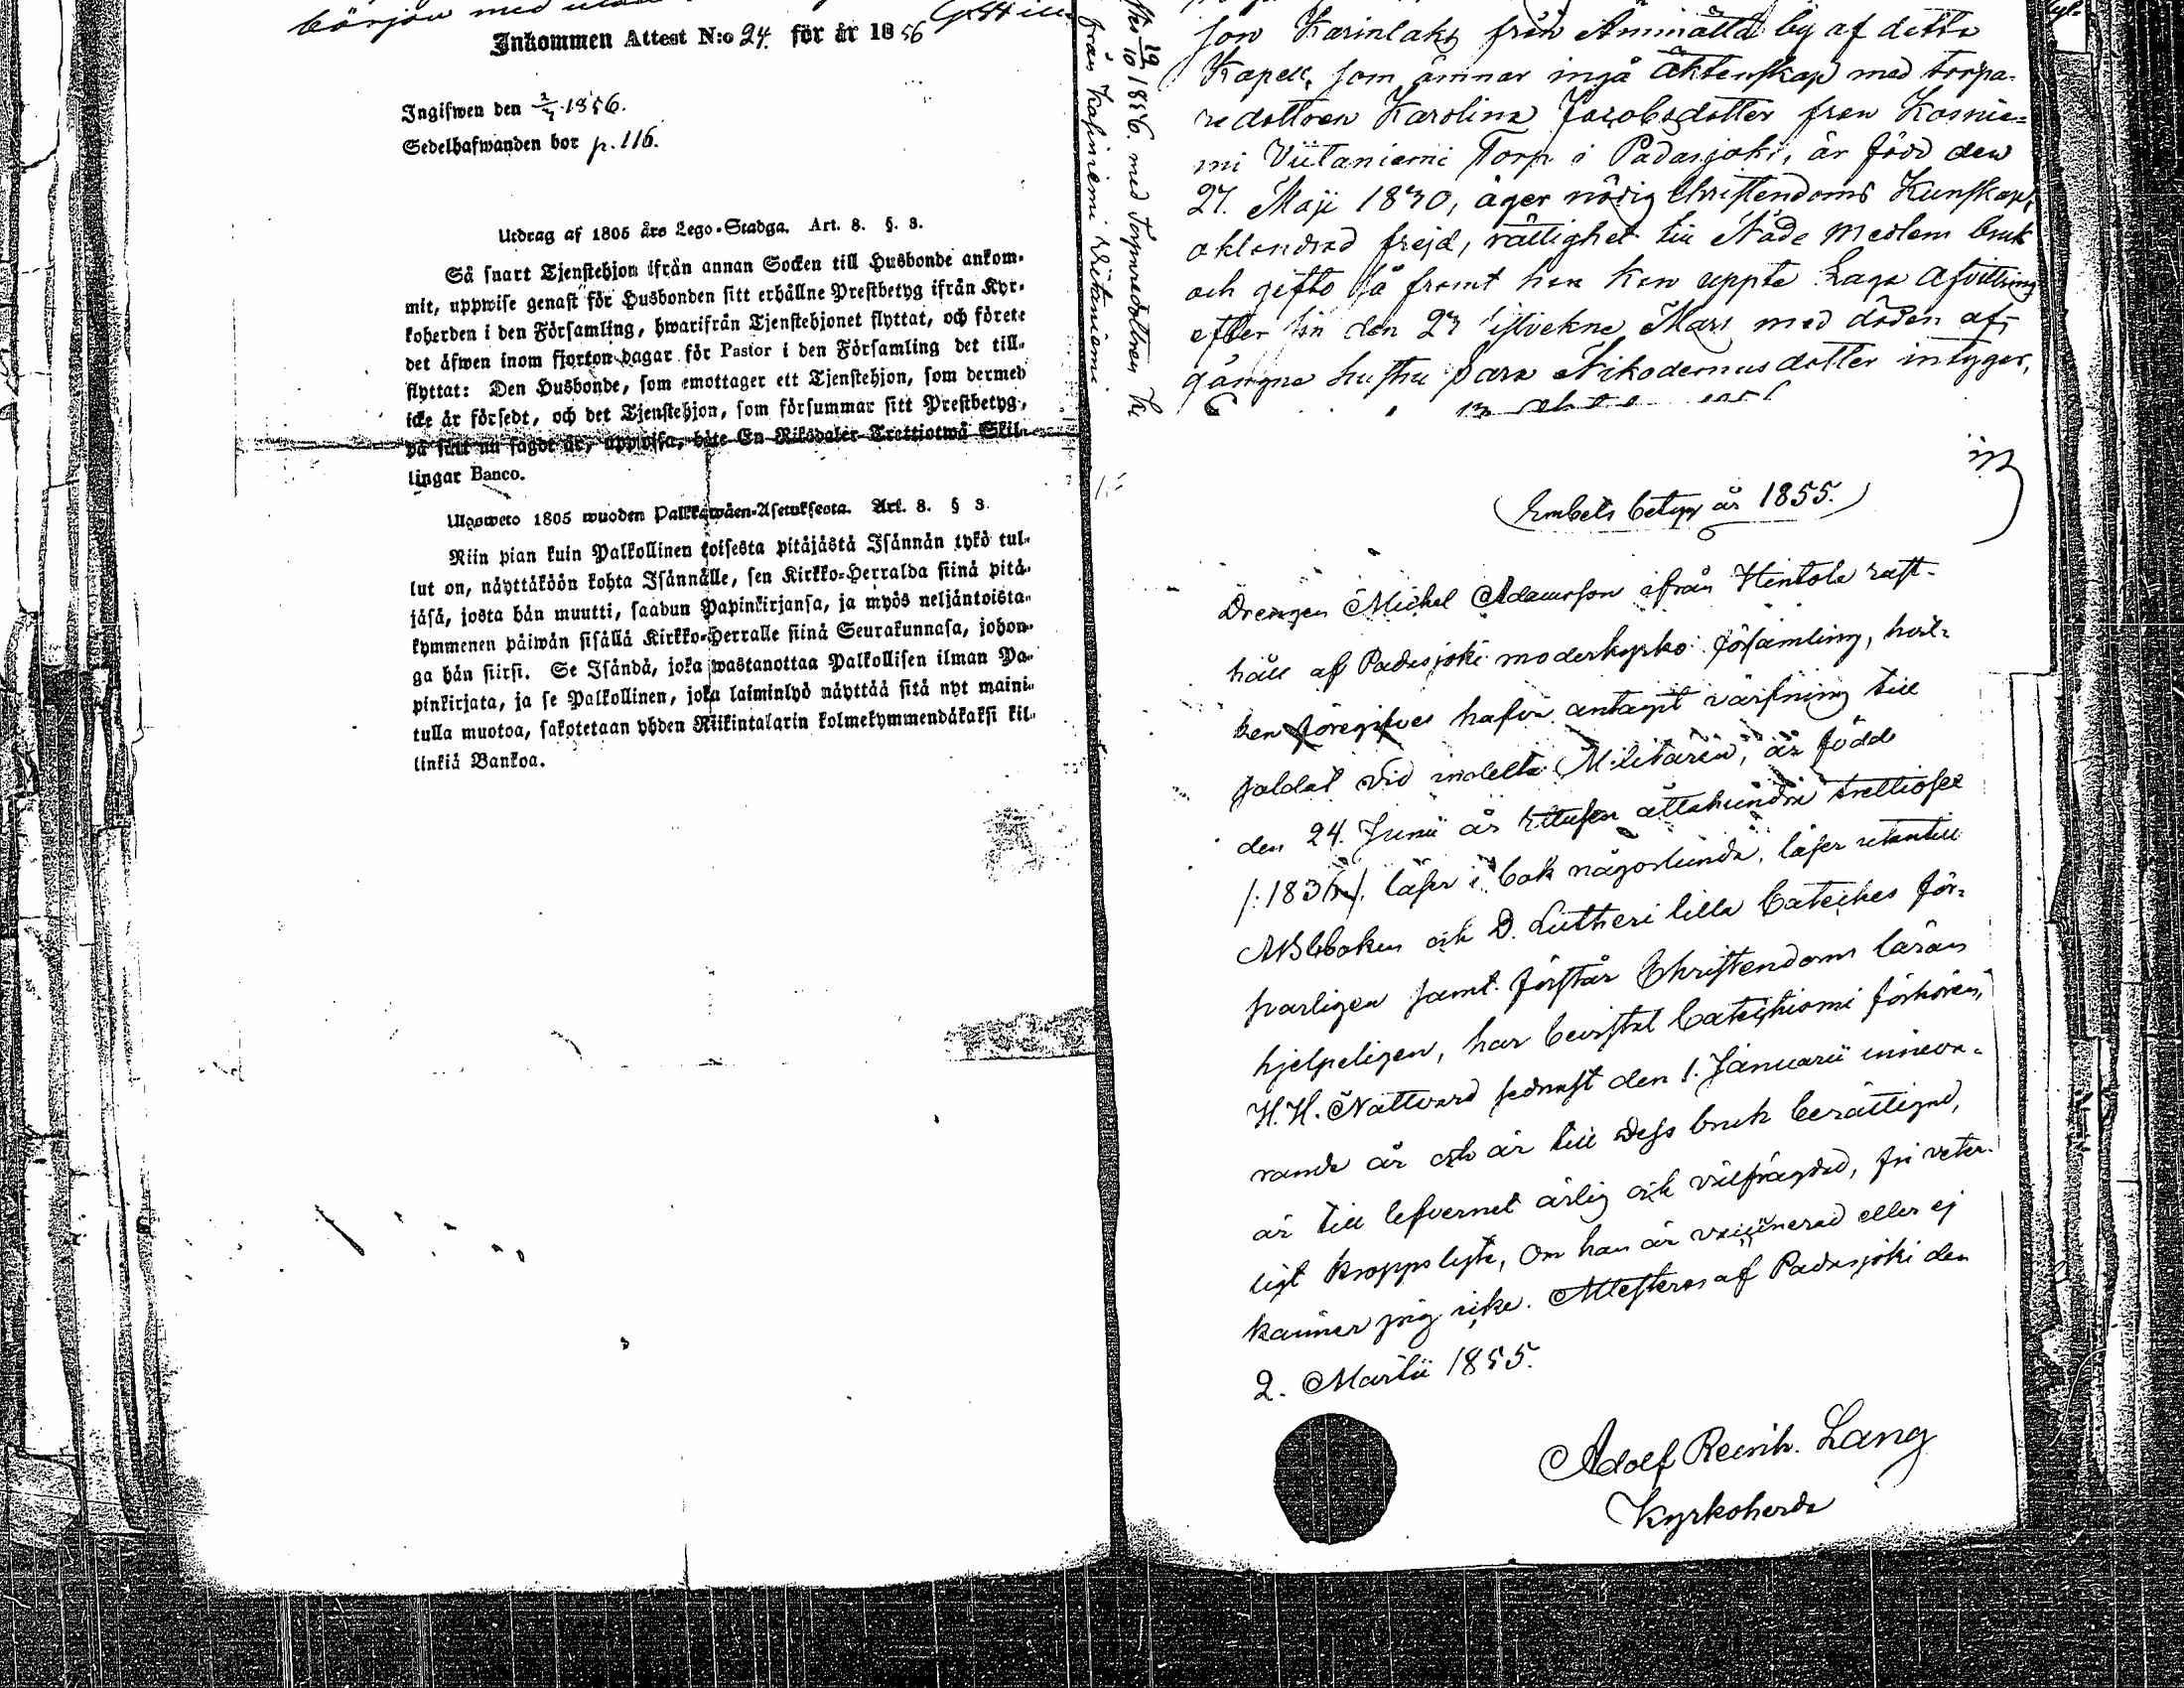 början med
Inkommen Attest N:o 24. för år 1856
Ingifwen den 2/4 1856.
Sedelhafwanden bor p. 116.
Utdrag af 1805 års Lego-Stadga. Art. 8. §. 3.
Så snart Tjenstehjon ifrån annan Socken till Husbonde ankom-
mit, uppwise genast för Husbonden sitt erhållne Prestbetyg ifrån Kyr-
koherden i den Församling, hwarifrån Tjenstehjonet flyttat, och förete
det äfwen inom fjorton dagar för Pastor i den Församling det till-
flyttat: Den Husbonde, som emottager ett Tjenstehjon, som dermed
icke är försedt, och det Tjenstehjon, som försummar sitt Prestbetyg,
på sätt nu sagdt är, uppwisa, böte En Riksdaler Trettiotwå Skil-
lingar Banco.
Ulosweto 1805 wuoden Palkkawäen-Asetuksesta. Art. 8. § 3.
Niin pian kuin Palkollinen toisesta pitäjästä Isännän tykö tul-
lut on, näyttäköön kohta Isännälle, sen Kirkko-Herralda siinä pitä-
jäsä, josta hän muutti, saadun Papinkirjansa, ja myös neljäntoista-
kymmenen päiwän sisällä Kirkko-Herralle siinä Seurakunnasa, johon-
ga hän siirsi. Se Isändä, joka wastanottaa Palkollisen ilman Pa-
pinkirjata, ja se Palkollinen, joka laiminlyö näyttää sitä nyt maini-
tulla muotoa, sakotetaan yhden Riikintalarin kolmekymmendäkaksi kil-
linkiä Bankoa.
19/10 1856. med Torparedottren K
från Kasiniemi Viitaniemi
son Karinlaks från Ammättä by af detta
Kapell, som ämnar ingå äktenskap med torpa-
redottren Karolina Jacobsdotter från Kasnie-
mi Viitaniemi Torp i Padasjoki, är född den
27. Maji 1830, äger nödig Christendoms Kunskap,
oklandrad frejd, rättighet till Nåde medlens bruk
och gifto så framt han kan uppte Laga afvittring
efter sin den 23 sistvekne Mars med döden af-
gångna hustru Sara Nikodemusdotter intygar,
Embets betyg år 1855.
Drengen Michel Adamsson ifrån Hentola rust-
håll af Padasjoki moderkyrko församling, hvil-
ken föregifves hafva antagit värfning till
soldat vid indelta Militären, är född
den 24. Junii år Ettusen åttahundra trettiosex
/:1836:/. läser i bok någorlunda, läser utantill
ABCboken och D. Lutheri lilla Cateches för-
svarligen samt förstår Christendoms läran
hjelpeligen, har bevistat Catechismi förhören,
H. H. Nattvard sednast den 1. Januarii inneva-
rande år och är till dess bruk berättigad,
är till lefvernet ärlig och välfrägdad, fri veter-
ligt kroppslyte, Om han är vaccinerad eller ej
känner jag icke. Attesteras af Padasjoki den
2. Martii 1855.
Adolf Reinh. Lang
Kyrkoherde